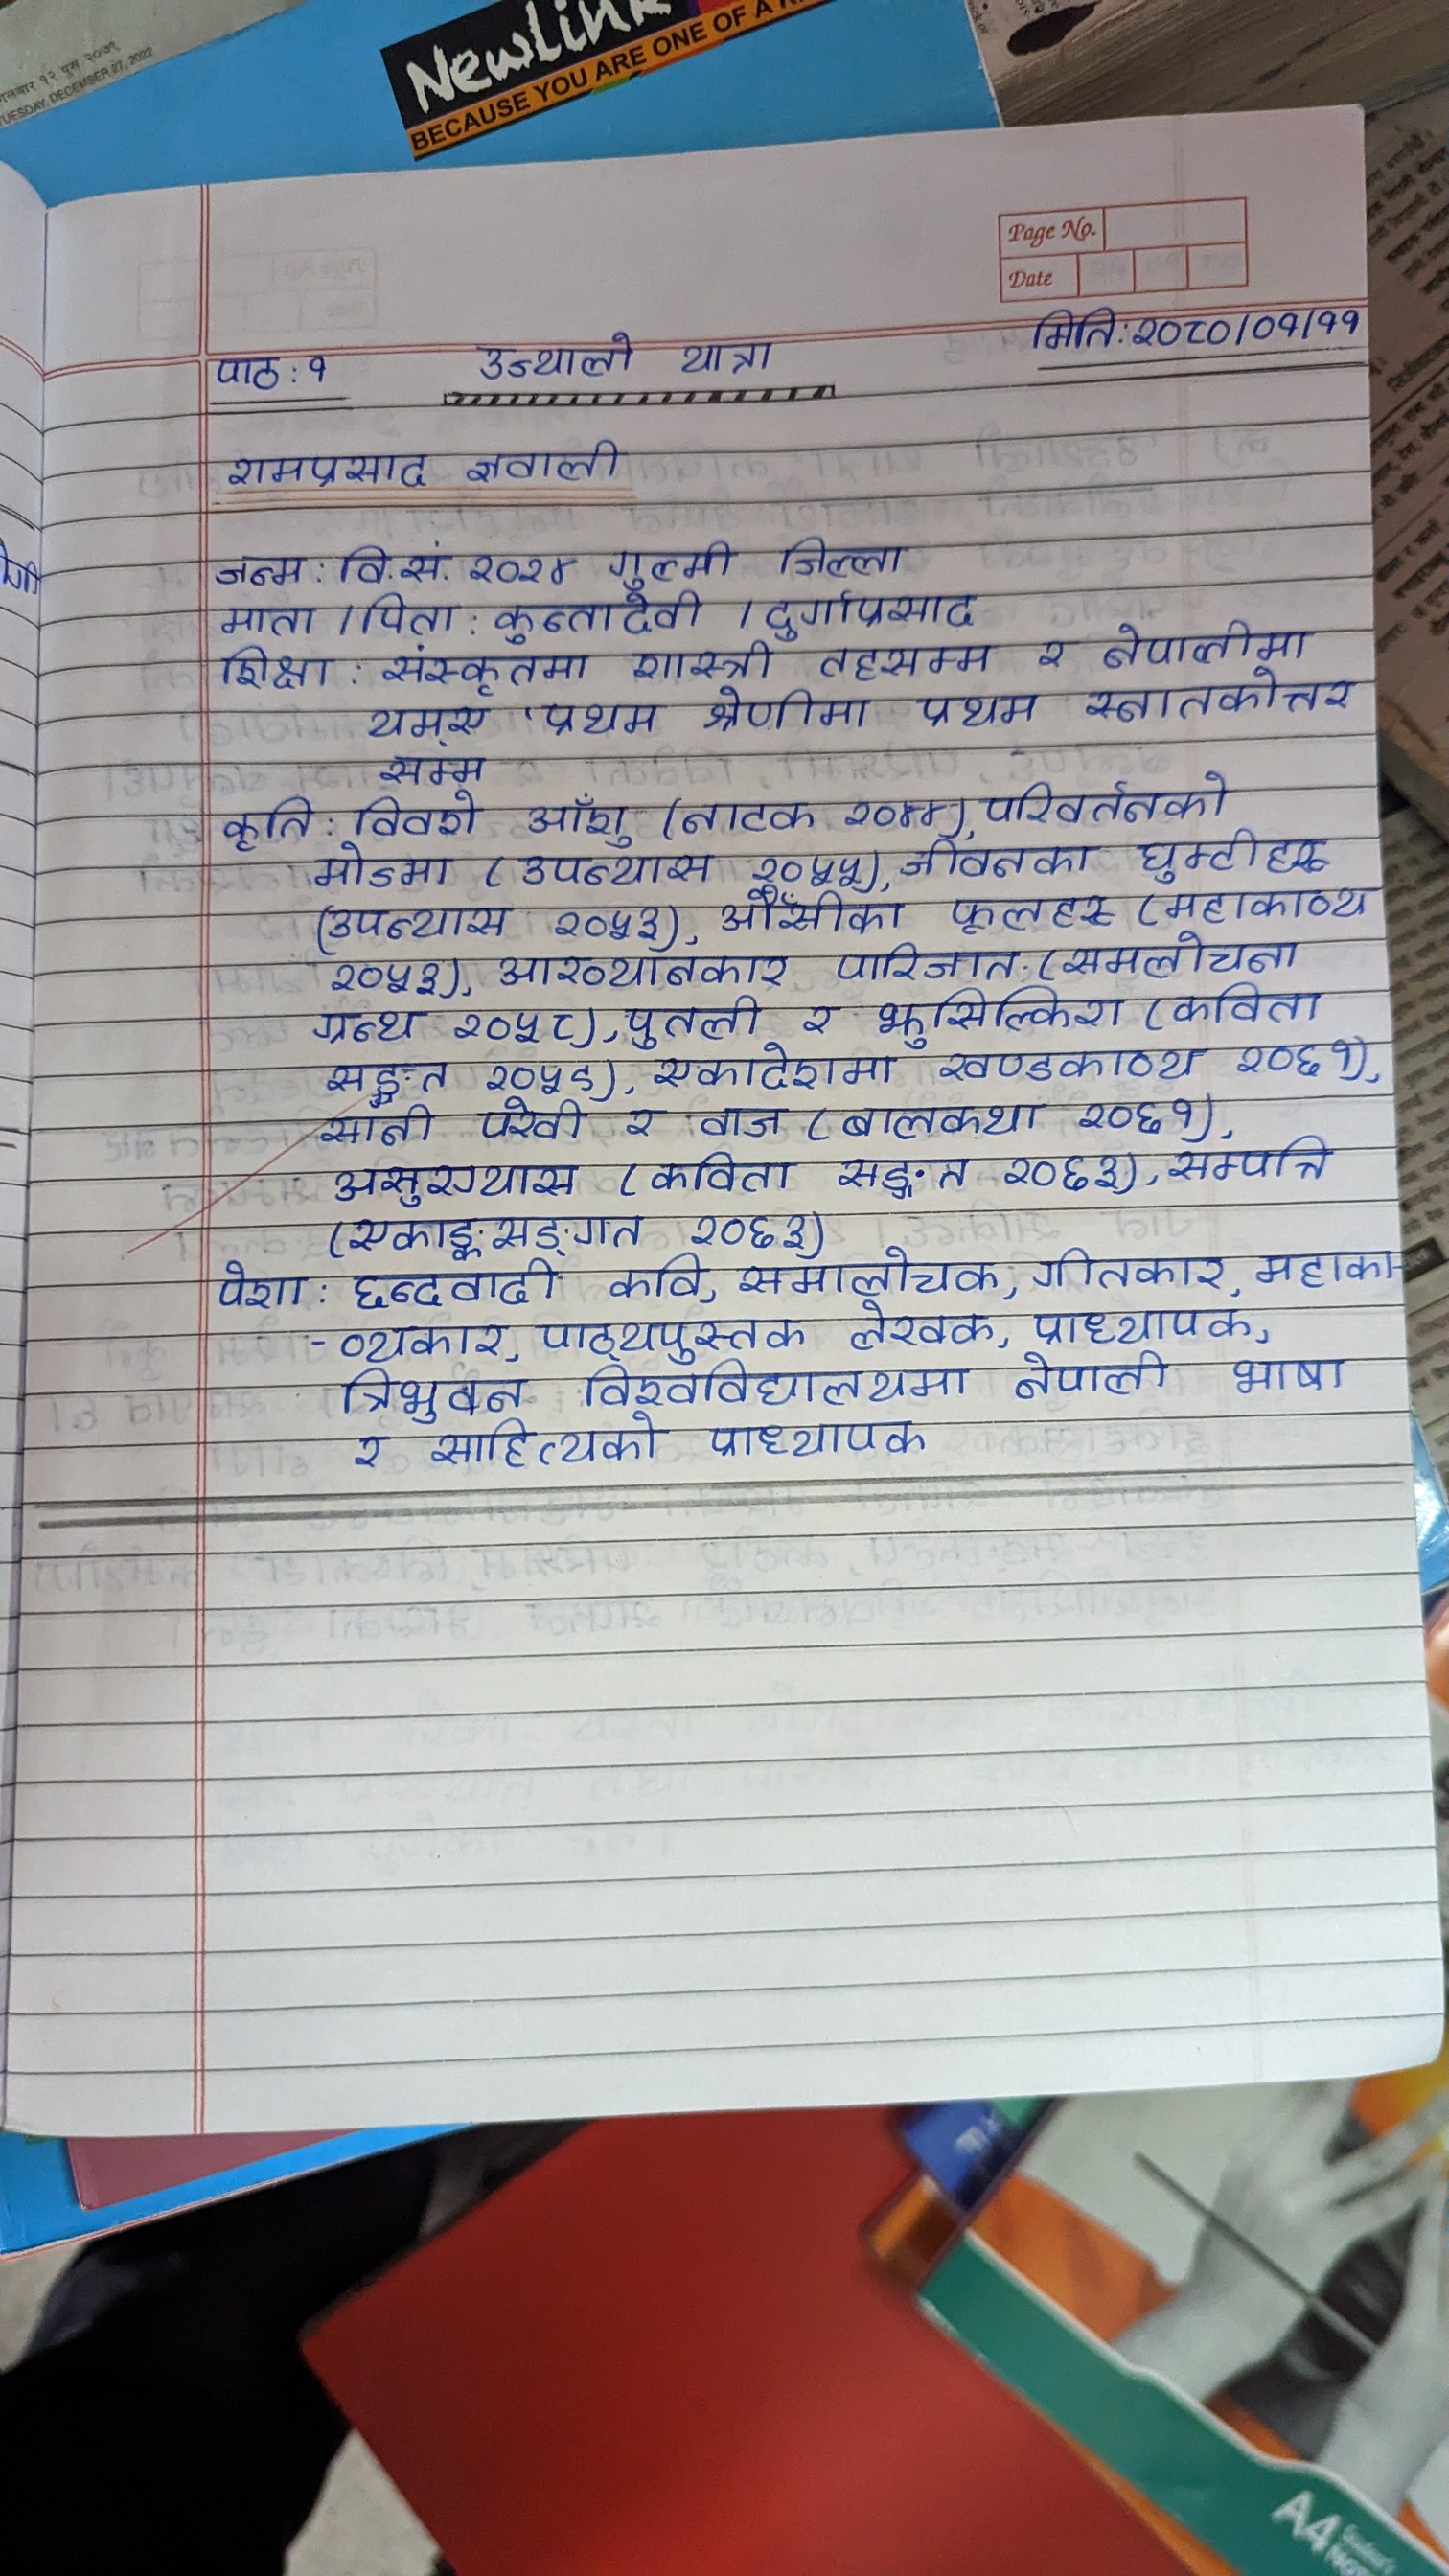 मंगलबार १२ पुस २०७९
TUESDAY, DECEMBER 27, 2022
NewLink
BECAUSE YOU ARE ONE OF A
Page No.
Date
मिति: २०८०/०१/११
पाठ : १ उज्यालो यात्रा
रामप्रसाद ज्ञवाली
जन्म : वि.सं. २०२४ गुल्मी जिल्ला
माता / पिता : कुन्तादेवी / दुर्गाप्रसाद
शिक्षा : संस्कृतमा शास्त्री तहसम्म र नेपालीमा
यम्ए प्रथम श्रेणीमा प्रथम स्नातकोत्तर
सम्म
कृति : विवशे आँशु (नाटक २०४४), परिवर्तनको
मोडमा (उपन्यास २०५५), जीवनका घुम्टीहरू
(उपन्यास २०५३), औँसीका फूलहरू (महाकाव्य
२०५३), आख्यानकार पारिजात (समलोचना
ग्रन्थ २०५८), पुतली र झुसिल्किरा (कविता
सङ्गत २०५९), एकादेशमा खण्डकाव्य २०६१),
सानी परेवी र वाज (बालकथा २०६१),
असुरग्यास (कविता सङ्गत २०६३), सम्पत्ति
(एकाङ्क सङ्गत २०६३)
पेशा : छन्दवादी कवि, समालोचक, गीतकार, महाका-
- व्यकार, पाठ्यपुस्तक लेखक, प्राध्यापक,
त्रिभुवन विश्वविद्यालयमा नेपाली भाषा
र साहित्यको प्राध्यापक
A4